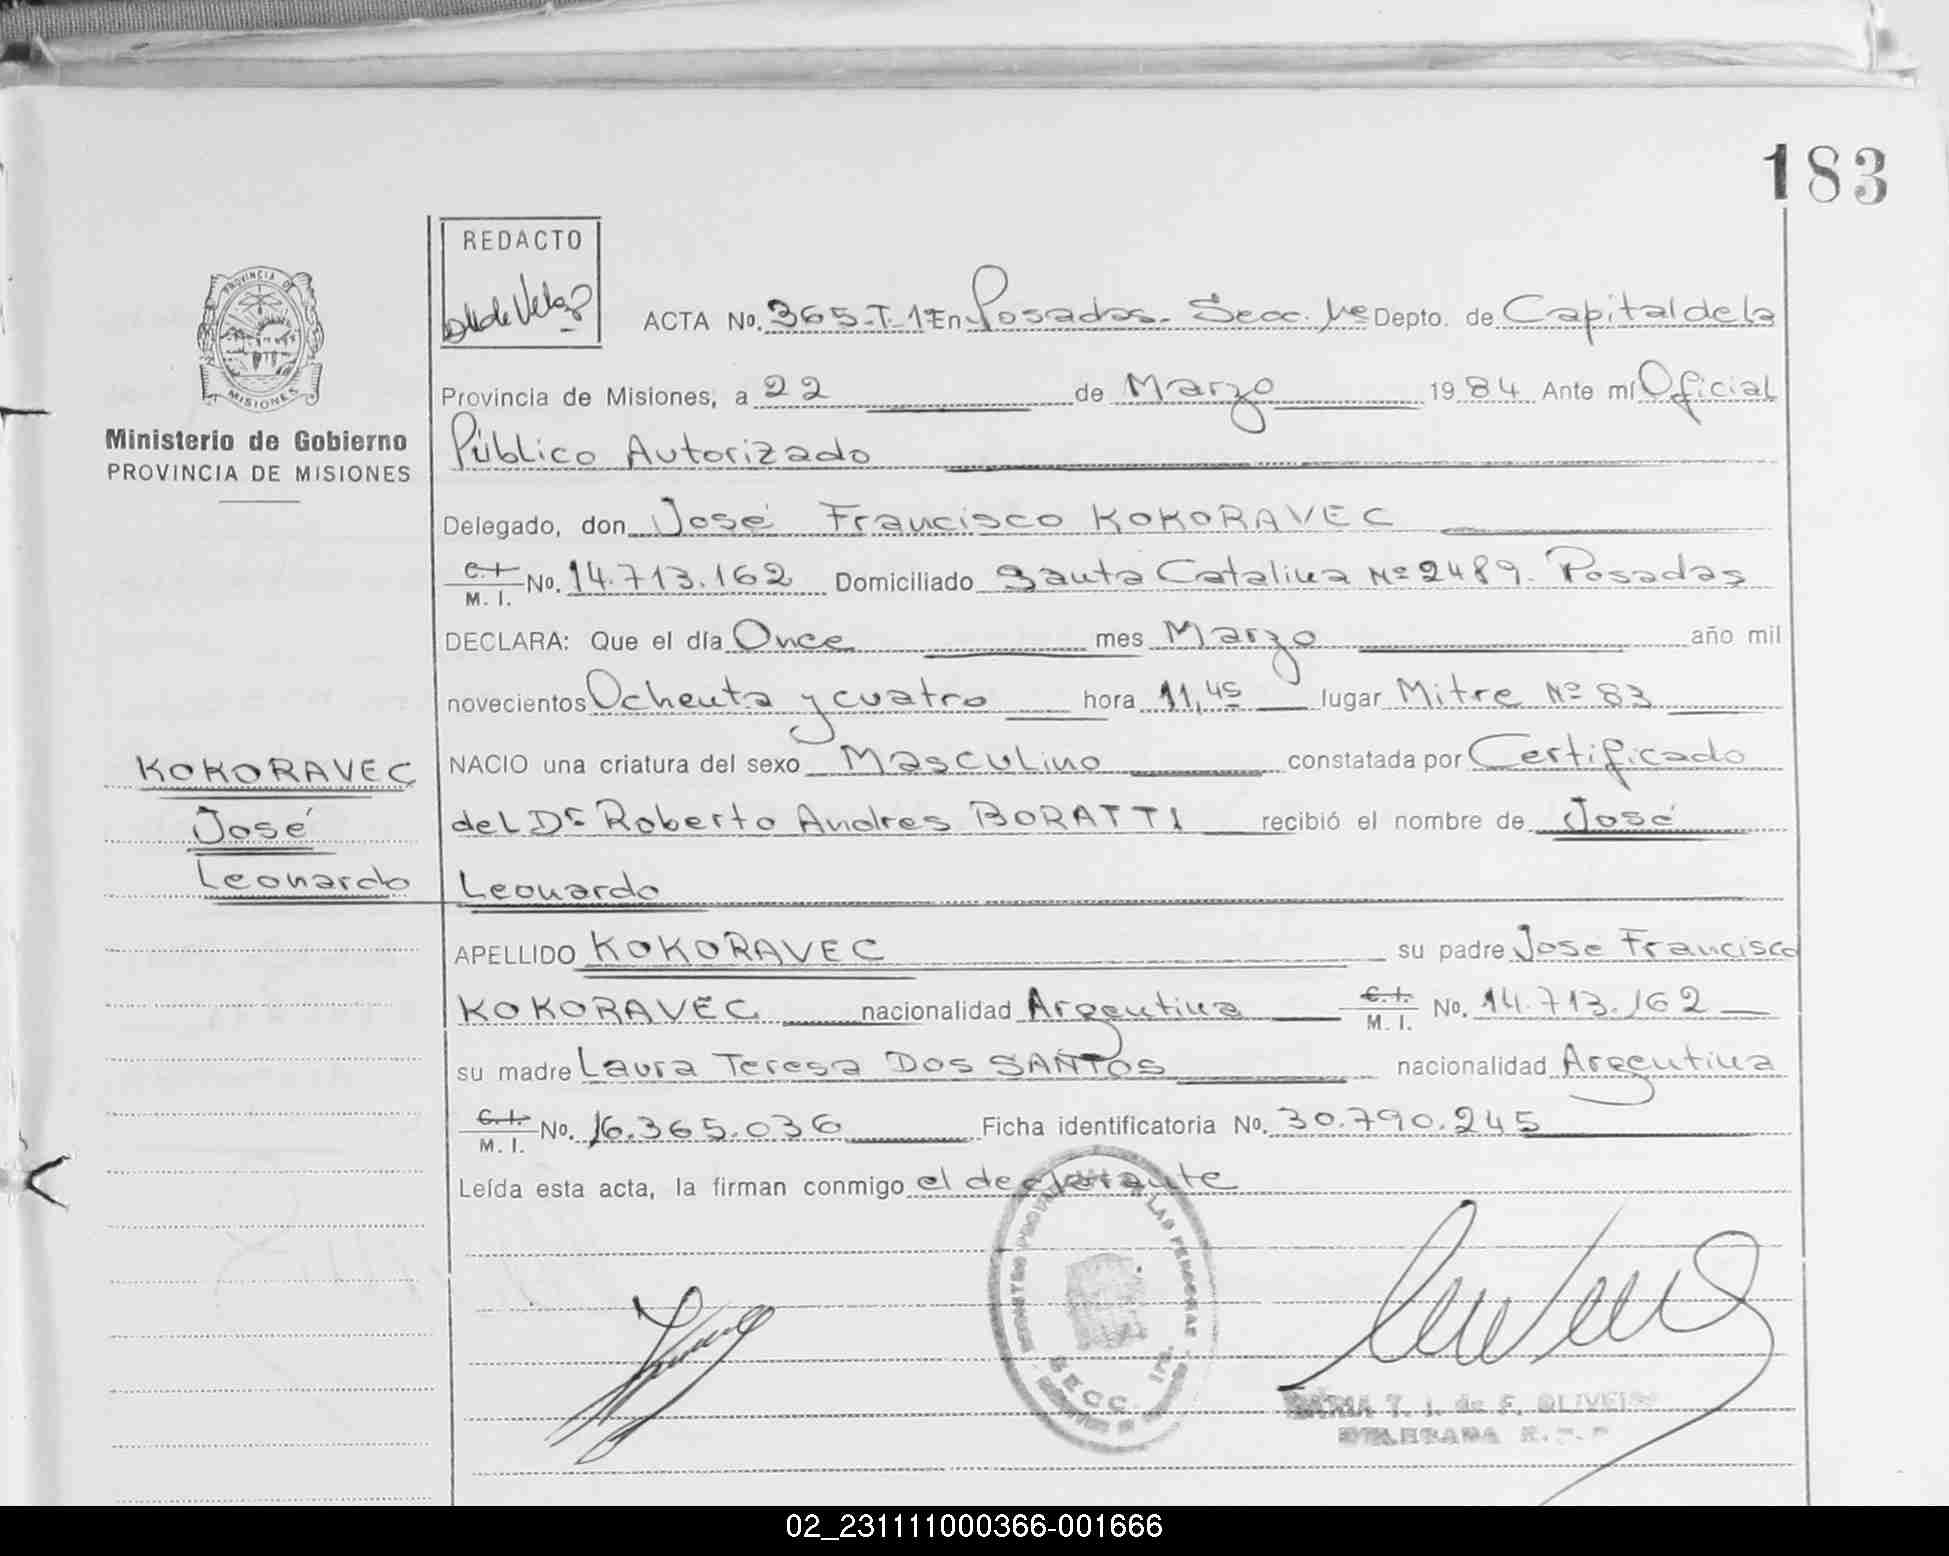 183
REDACTO
PROVINCIA DE
MISIONES
Ministerio de Gobierno
PROVINCIA DE MISIONES
ACTA No. 365-T-1º En Posadas - Secc. 1ª Depto. de Capital de la
Provincia de Misiones, a 22 de Marzo 1984 Ante mí Oficial
Público Autorizado
Delegado, don José Francisco KOKORAVEC
C.I. M. I. No. 14.713.162 Domiciliado Santa Catalina Nº 2489. Posadas
DECLARA: Que el día Once mes Marzo año mil
novecientos Ochenta y cuatro hora 11,45 lugar Mitre Nº 83
NACIO una criatura del sexo Masculino constatada por Certificado
del Dr Roberto Andres BORATTI recibió el nombre de José
Leonardo
KOKORAVEC
José
Leonardo
APELLIDO KOKORAVEC su padre José Francisco
KOKORAVEC nacionalidad Argentina C.I. M. I. No. 14.713.162
su madre Laura Teresa DOS SANTOS nacionalidad Argentina
C.I. M. I. No. 16.365.036 Ficha identificatoria No. 30.790.245
Leída esta acta, la firman conmigo el declarante
LAS PERSONAS
SECC. 1ra.
MARIA T. I. de F. OLIVEIRA
DELEGADA
02_231111000366-001666